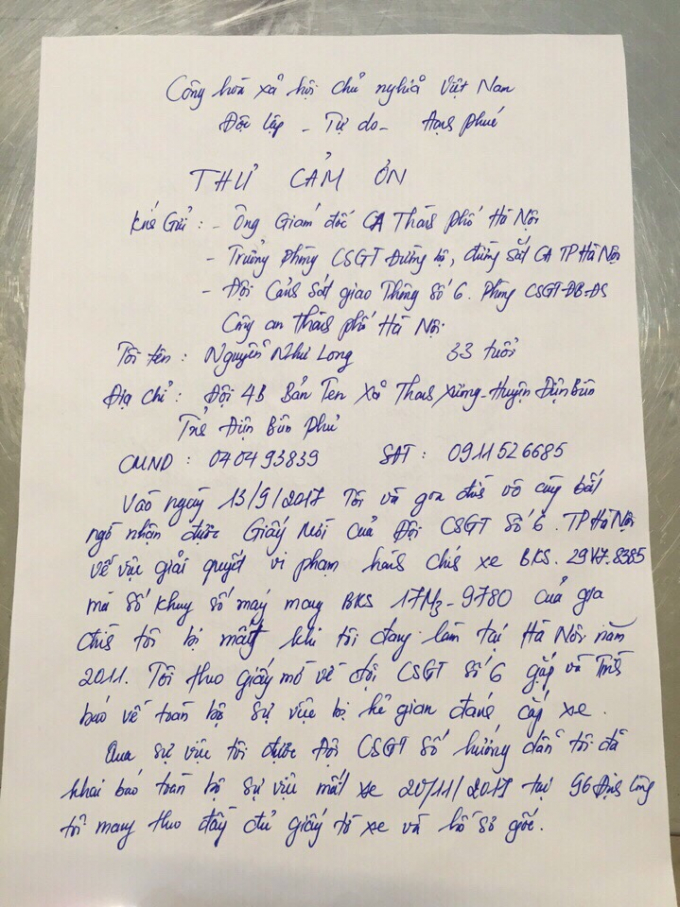 Cộng hòa xã hội chủ nghĩa Việt Nam
Độc lập - Tự do - Hạnh phúc
THƯ CẢM ƠN
Kính Gửi : - Ông Giám đốc CA Thành phố Hà Nội
- Trưởng phòng CSGT Đường bộ, đường sắt CA TP Hà Nội
- Đội Cảnh Sát giao Thông Số 6. Phòng CSGT-ĐB-ĐS
Công an Thành phố Hà Nội.
Tôi tên : Nguyễn Như Long 33 tuổi
Địa chỉ : Đội 4B Bản Ten Xã Thanh Xương - Huyện Điện Biên
Tỉnh Điện Biên Phủ
CMND : 040493839 SĐT : 0911526685
Vào ngày 13/9/2017 Tôi và gia đình vô cùng bất
ngờ nhận được Giấy Mời Của Đội CSGT Số 6. TP Hà Nội
về việc giải quyết vi phạm hành chính xe BKS. 29V7.8385
mà số khung số máy mang BKS 17M3-9780 của gia
đình tôi bị mất khi tôi đang làm tại Hà Nội năm
2011. Tôi theo giấy mời về đội CSGT Số 6 gặp và Trình
báo về toàn bộ sự việc bị kẻ gian đánh cắp xe.
Qua sự việc tôi được Đội CSGT Số hướng dẫn tôi đã
khai báo toàn bộ sự việc mất xe 20/11/2017 tại 96 Định Công
tôi mang theo đầy đủ giấy tờ xe và hồ sơ gốc.